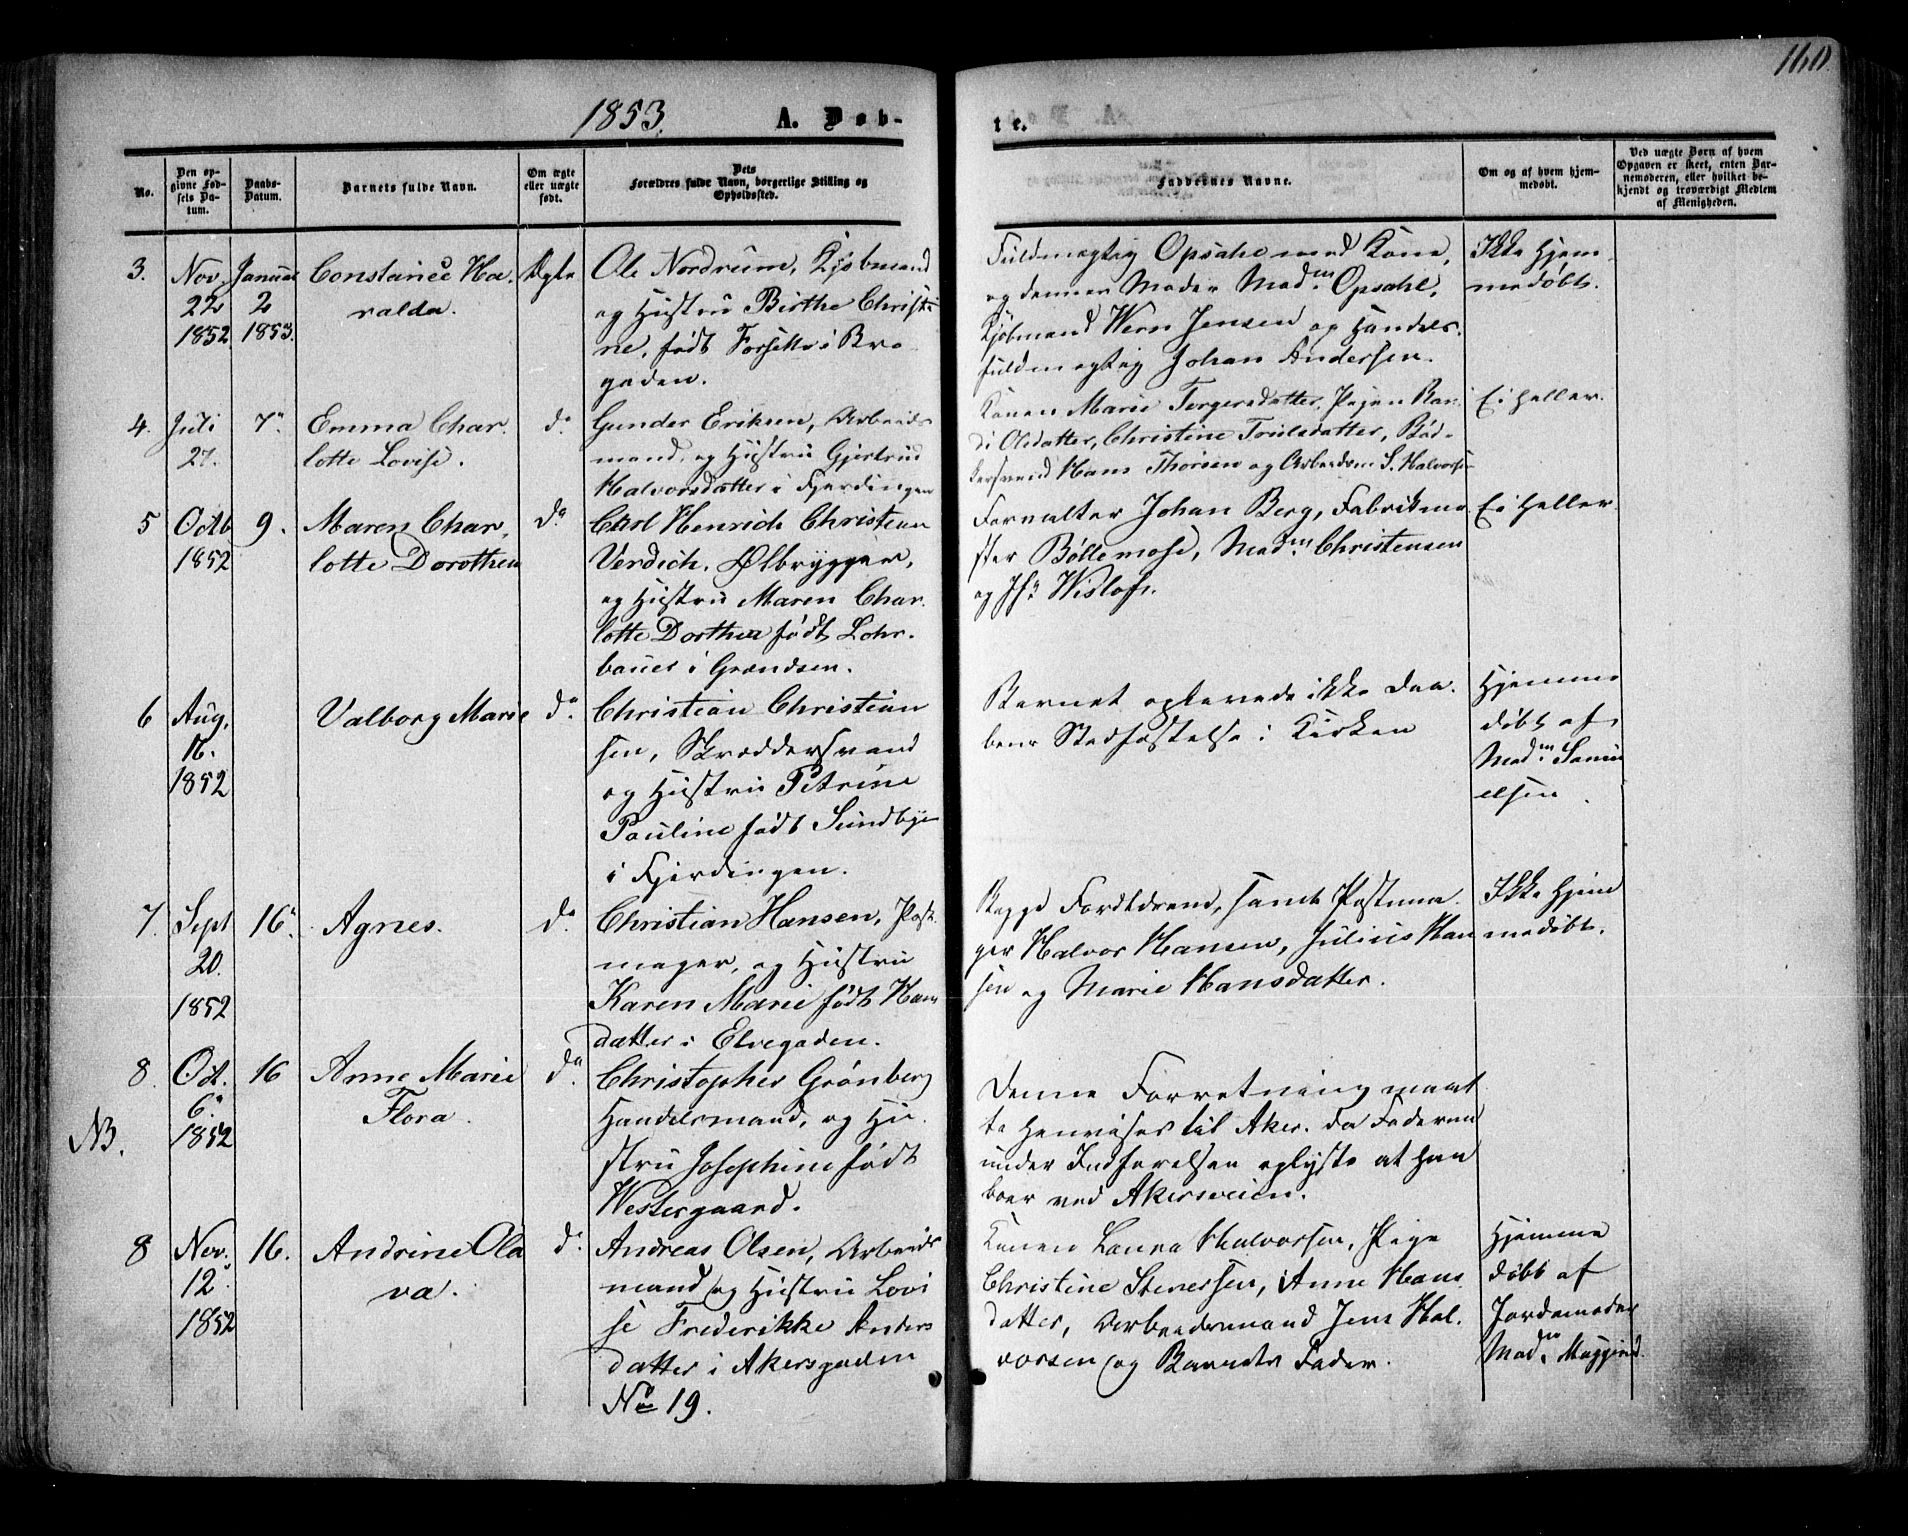 160.
1853.
A. Døb-
te.
No.
Den op-
givne Fød-
sels Da-
tum.
Daabs-
Datum.
Barnets fulde Navn.
Om ægte
eller uægte
født.
Dets
Forældres fulde Navn, borgerlige Stilling og
Opholdssted.
Faddernes Navne.
Om og af hvem hjem-
medøbt.
Ved uægte Børn af hvem
Opgaven er skeet, enten Bar-
nemoderen, eller hvilket be-
kjendt og troværdigt Medlem
af Menigheden.
3.
Nov.
22
1852
Januar
2
1853.
Constance Ha-
ralda.
Ægte
Ole Nordrum, Kjøbmand
og Hustru Birthe Christi-
ne, født Forseth i Bro-
gaden.
Fuldmægtig Opsahl med Kone,
og dennes Moder Madm Opsahl,
Kjøbmand Wern Jensen og Handels-
fuldmægtig Johan Andersen.
Ikke Hjem-
medøbt.
4.
Juli
27.
7.
Emma Char-
lotte Lovise.
do
Gunder Eriksen, Arbeids-
mand, og Hustru Gjertrud
Halvorsdatter i Fjerdingen
Konen Marie Torgersdatter, Pigen Ran-
di Olsdatter, Christine Truulsdatter, Bød-
kersvend Hans Thorsen og Arbeidsm. S. Halvorsen
Ei heller.
5
Octb
1852
9.
Maren Char-
lotte Dorothea
do
Carl Henrich Christian
Verdich, Ølbrygger,
og Hustru Maren Char-
lotte Dorthea født Lohr-
bauer i Grændsen.
Forvalter Johan Berg, Fabrikme-
ster Bøllemose, Madm Christensen
og Jfr Wisløf.
Ei heller
6
Aug.
16.
1852
Valborg Marie
do
Christian Christian-
sen, Skræddersvend
og Hustru Petrine
Pauline født Sundbye
i Fjerdingen.
Barnet oplevede ikke Daa-
bens Stadfæstelse i Kirken
Hjemme-
døbt af
Madm Samu-
elsen.
7.
Sept
20.
1852
16.
Agnes.
do
Christian Hansen, Post-
mager, og Hustru
Karen Marie født Hans-
datter i Elvegaden.
Begge Forældrene, samt Postma-
ger Halvor Hansen, Julius Han-
sen og Marie Hansdatter.
Ikke Hjem-
medøbt.
NB.
8.
Oct.
6.
1852
16
Anne Marie
Flora.
do
Christopher Grønberg
Handelsmand, og Hu-
stru Josephine født
Westergaard.
Denne Forretning maat-
te henvises til Aker, da Faderen
under Indførelsen oplyste at han
boer ved Akersveien.
8
Nov.
12.
1852
16.
Andrine Ola-
va.
do
Andreas Olsen, Arbeids-
mand og Hustru Lovi-
se Frederikke Anders-
datter i Akersgaden
No 19.
Konen Laura Halvorsen, Pige
Christine Stenersen, Anne Hans-
datter, Arbeidsmand Jens Hal-
vorsen og Barnets Fader.
Hjemme-
døbt af
Jordemoder
Madm